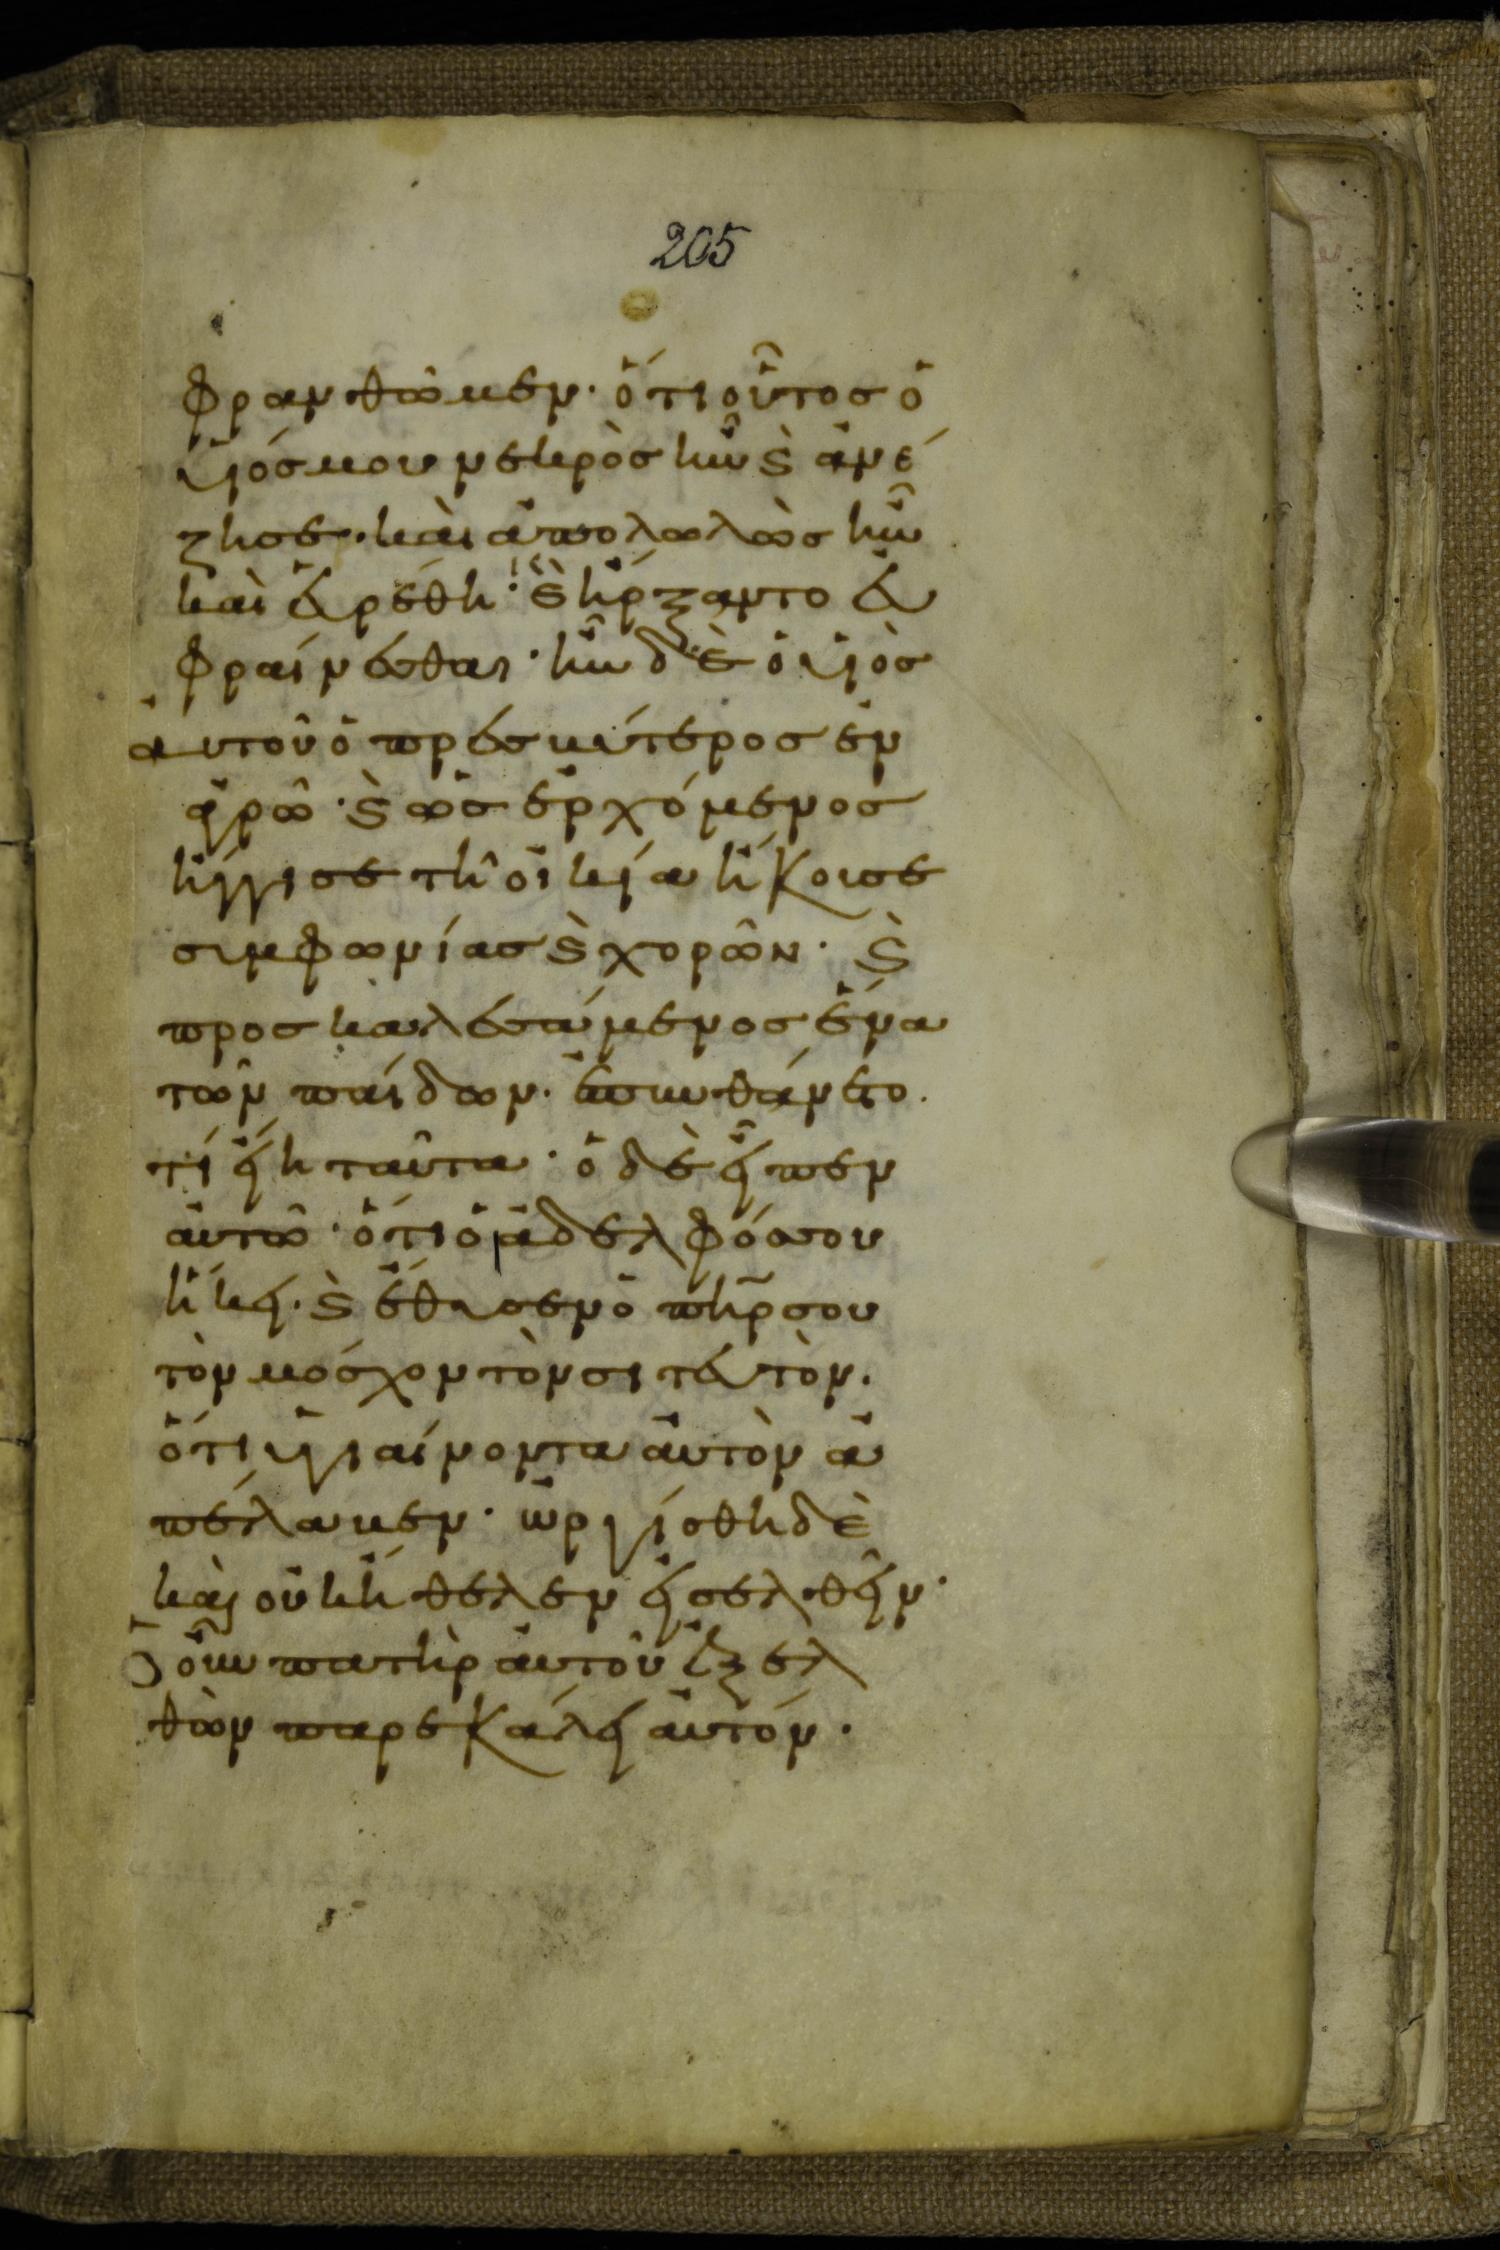 205
φρανθῶμεν· ὅτι οὗτος ὁ
υἱός μου νεκρὸς ἦν ϗ ἀνέ
ζησε· καὶ ἀπολωλὼς ἦν
καὶ εὑρέθη· ϗ ἤρξαντο ευ
φραίνεσθαι· ἦν δὲ ὁ υἱὸς
αυτοῦ ὁ πρεσβύτερος ἐν
ἀγρῶ· ϗ ὡς ἐρχόμενος
ἤγγισε τῆ οἰκία ἤκουσε
συμφωνίας ϗ χορῶν· ϗ
προσκαλεσάμενος ἕνα
τῶν παίδων· ἐπυνθάνετο.
τί εἴη ταῦτα· ὁ δὲ εἶπεν
αὐτῶ· ὅτι ὁ ἀδελφός σου
ἥκει· ϗ ἔθυσεν ὁ πηρ σου
τὸν μόσχον τὸν σιτευτὸν.
ὅτι ὑγιαίνοντα αὐτὸν ἀ
πέλαβεν· ὠργίσθη δὲ
καὶ οὐκ ἤθελεν εἰσελθεῖν·
Ὁ οὖν πατὴρ αὐτοῦ ἐξελ
θὼν παρεκάλει αὐτόν·